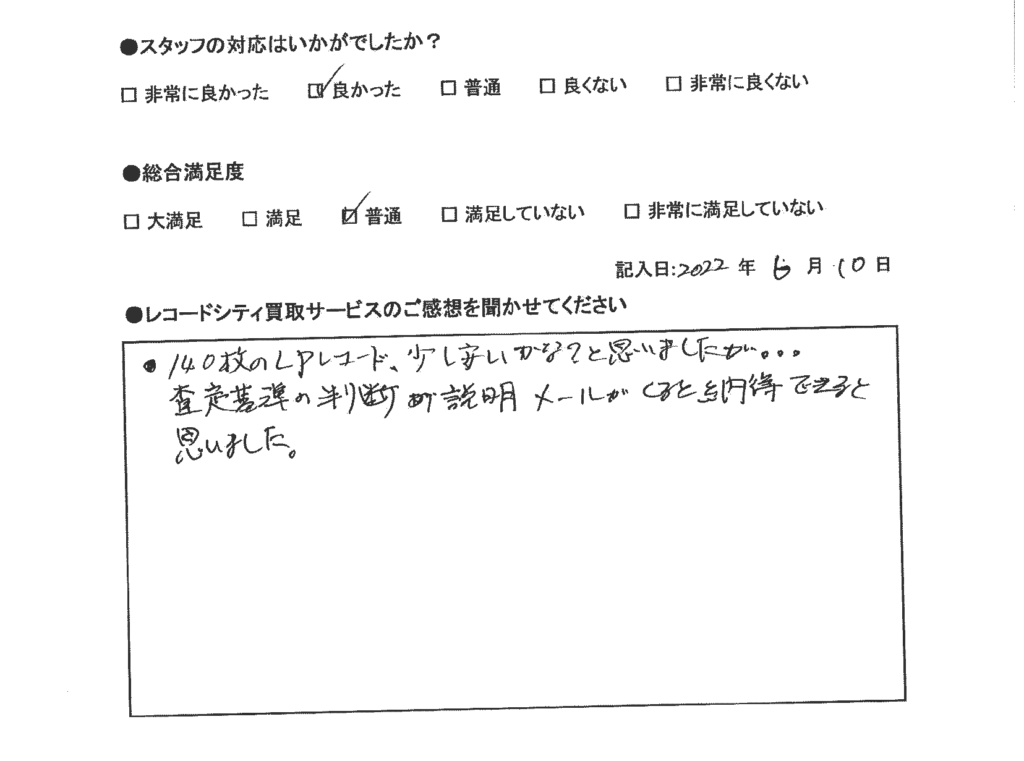 ●スタッフの対応はいかがでしたか？
□ 非常に良かった ☑ 良かった □ 普通 □ 良くない □ 非常に良くない
●総合満足度
□ 大満足 □ 満足 ☑ 普通 □ 満足していない □ 非常に満足していない
記入日:2022 年 6 月 10 日
●レコードシティ買取サービスのご感想を聞かせてください
● 140枚のLPレコード、少し安いかな？と思いましたが。。。
査定基準の判断 説明メールがくると納得できると
思いました。